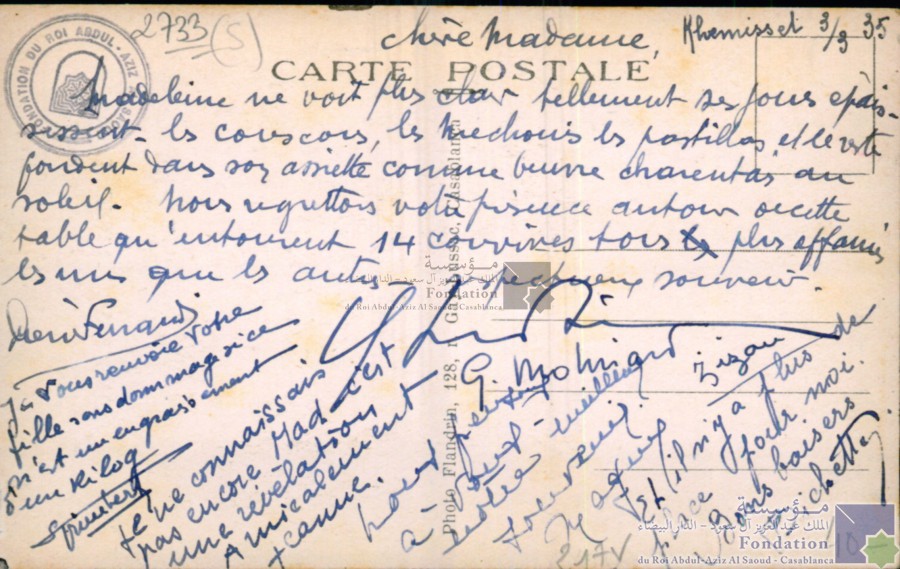 2733 (S)
Khemisset 3/3 35
chère Madame,
CARTE POSTALE
FONDATION DU ROI ABDUL-AZIZ
Madeleine ne voit plus clair tellement ses joues épais-
sissent - les couscous, les mechouis les pastillas, et le reste
fondent dans son assiette comme beurre charentais au
soleil. Nous regrettons votre présence autour de cette
table qu'entourent 14 convives tous plus affamés
les uns que les autres. respectueux souvenir.
Photo Flandrin, 128, Casablanca
مؤسسة
الملك عبدالعزيز آل سعود - الدار البيضاء
Fondation
du Roi Abdul-Aziz Al Saoud - Casablanca
Je vous renvoie votre
fille sans dommage si ce
n'est un engraissement
d'un kilog
Je ne connaissais
pas encore Mad, c'est
une révélation
Amicalement
Jeanne.
G.
Zizou
meilleur
souvenir
Et il n'y a plus de
place pour moi.
baisers
217V
مؤسسة
الملك عبدالعزيز آل سعود - الدار البيضاء
Fondation
du Roi Abdul-Aziz Al Saoud - Casablanca
10-